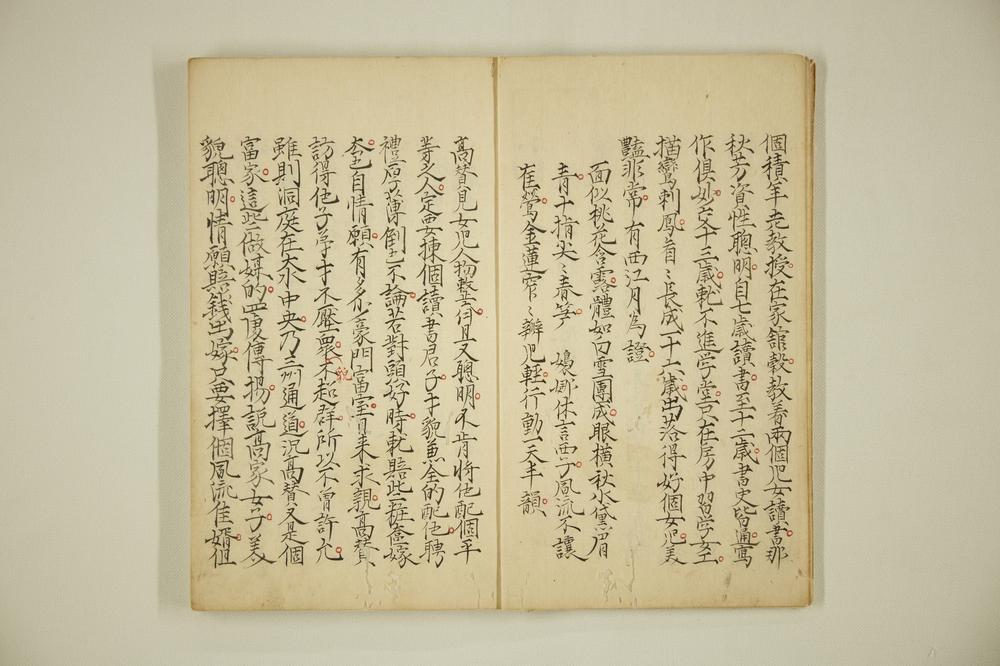 個積年老教授在家舘穀教着兩個児女讀書那
秋芳資性聰明自七歲讀書至十二歲書史皆通寫
作俱妙交十三歲就不進学堂只在房中習学女工
描鸞刺鳳看〻長成一十六歲出落得好個女児美
豔非常有西江月為證
面似桃花含露體如白雪團成眼橫秋水黛眉
青十指尖〻春笋　嬝娜休言西子風流不讓
崔鶯金蓮窄〻瓣児輕行動一天丰韻
高賛見女児人物整齐且又聰明不肯將他配個平
等之人定要揀個讀書君子才貌兼全的配他聘
禮厚薄倒也不論若對頭好時就賠些粧奩嫁
去也自情願有多少豪門富室日来求親高賛
訪得他子弟才不壓衆貌不起群所以不曾許允
雖則洞庭在水中央乃三州通道况高賛又是個
富家這些做媒的四處傳揚説高家女子美
貌聰明情願賠錢出嫁只要擇個風流佳婿但